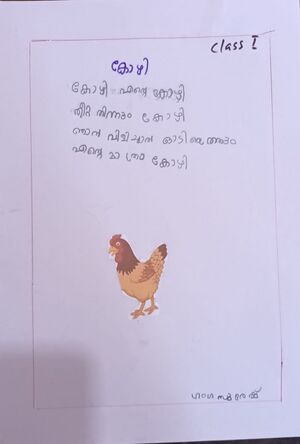 class I
കോഴി
കോഴി എന്റെ കോഴി
തീറ്റ തിന്നും കോഴി
ഞാൻ വിളിച്ചാൽ ഓടി
എന്റെ കോഴി
ഗംഗ സുരേഷ്